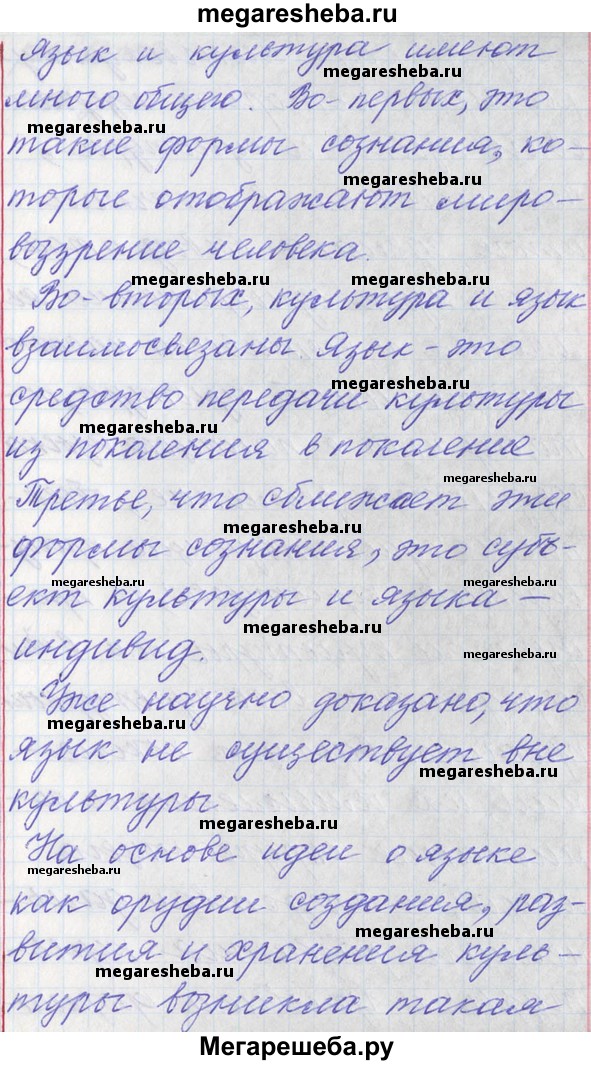 megaresheba.ru
Язык и культура имеют
megaresheba.ru
много общего. Во-первых, это
megaresheba.ru
такие формы сознания, ко-
megaresheba.ru
торые отображают миро-
воззрение человека.
megaresheba.ru megaresheba.ru
Во-вторых, культура и язык
взаимосвязаны. Язык - это
megaresheba.ru
средство передачи культуры
megaresheba.ru
из поколения в поколение
megaresheba.ru
Третье, что сближает эти
megaresheba.ru
формы сознания, это субъ-
megaresheba.ru megaresheba.ru
ект культуры и языка -
megaresheba.ru
индивид.
megaresheba.ru
Уже научно доказано, что
megaresheba.ru
язык не существует вне
megaresheba.ru
культуры
megaresheba.ru
На основе идеи о языке
megaresheba.ru
как орудии создания, раз-
megaresheba.ru
вития и хранения куль-
megaresheba.ru
туры возникла такая
Мегарешеба.ру